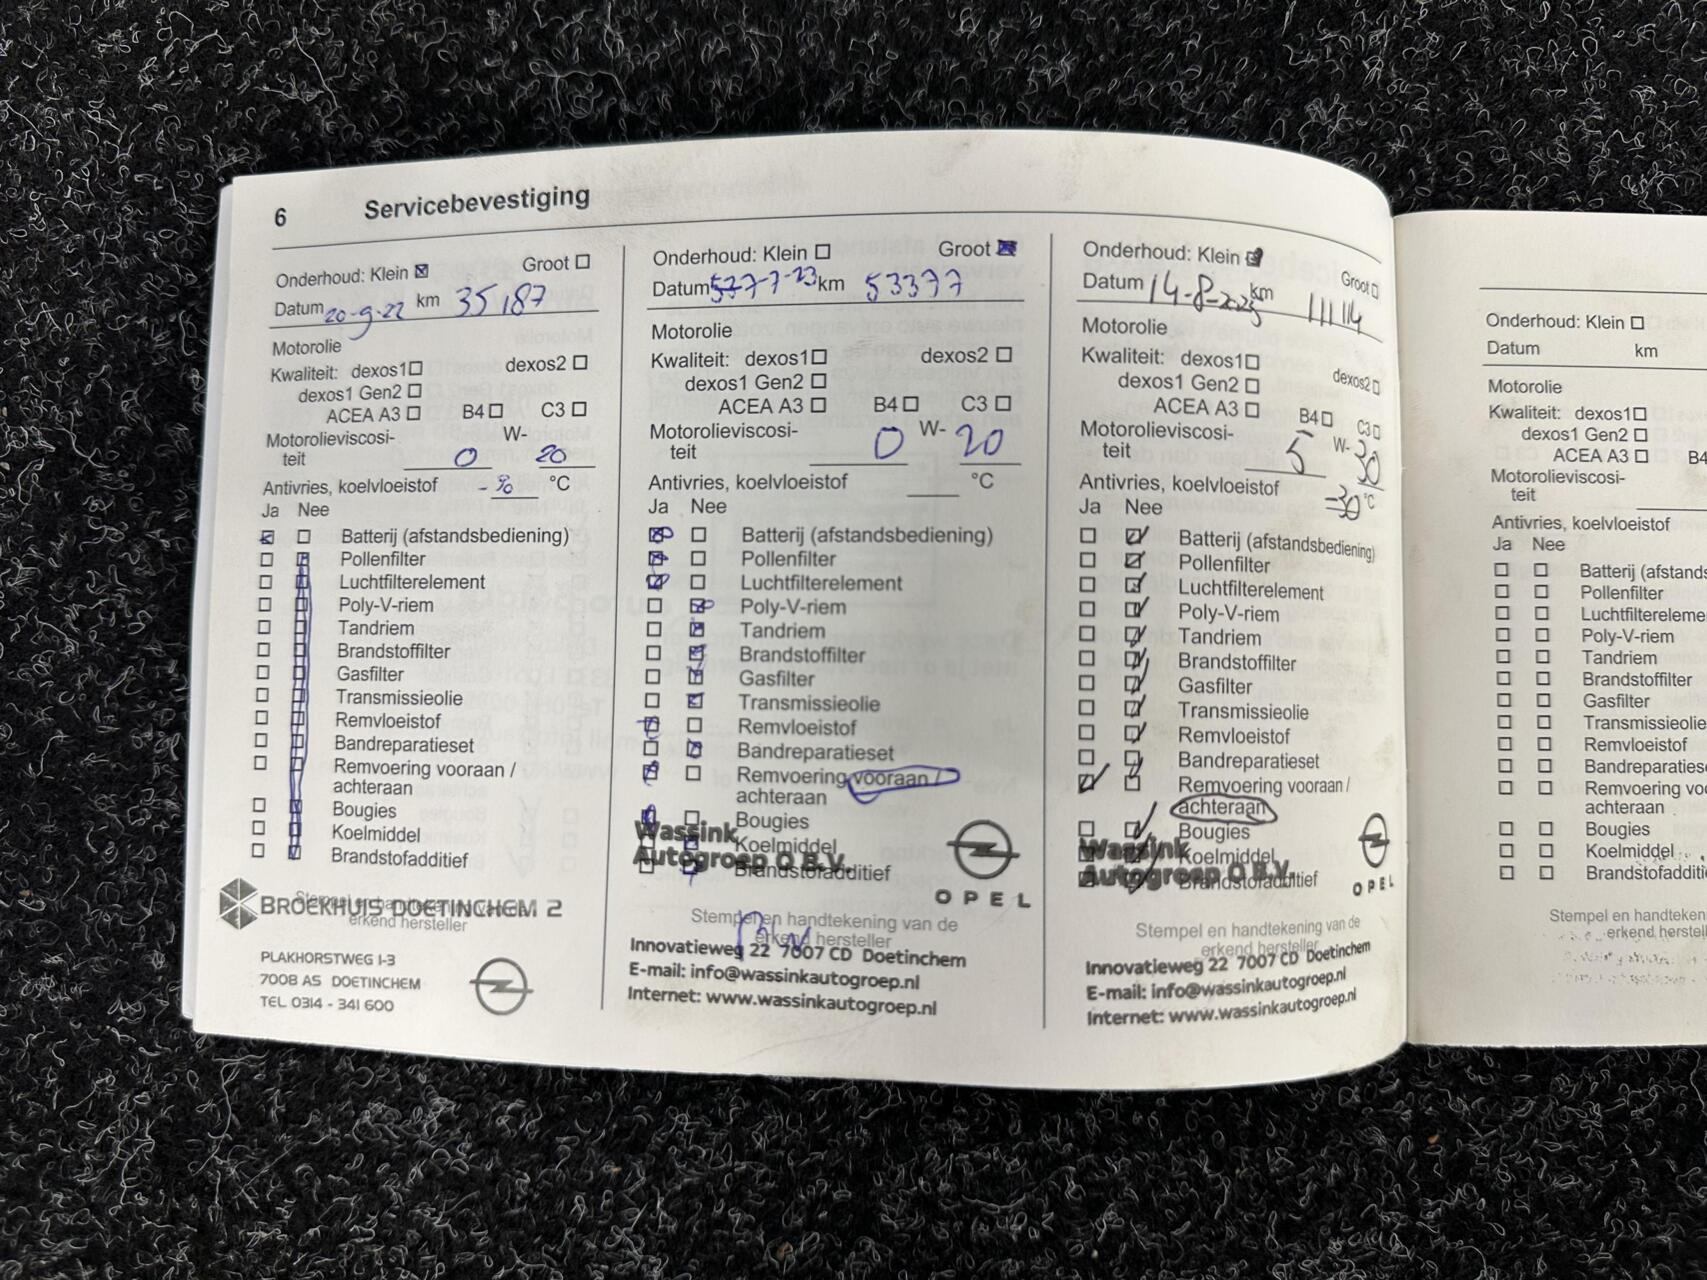 6 Servicebevestiging
Onderhoud: Klein ☒ Groot ☐
Datum 20-9-22 km 35187
Motorolie
Kwaliteit: dexos1 ☐ dexos2 ☐
dexos1 Gen2 ☐
ACEA A3 ☐ B4 ☐ C3 ☐
Motorolieviscosi- W-
teit 0 20
Antivries, koelvloeistof °C
Ja Nee
Batterij (afstandsbediening)
Pollenfilter
Luchtfilterelement
Poly-V-riem
Tandriem
Brandstoffilter
Gasfilter
Transmissieolie
Remvloeistof
Bandreparatieset
Remvoering vooraan /
achteraan
Bougies
Koelmiddel
Brandstofadditief
Stempel en handtekening van de
erkend hersteller
BROEKHUIS DOETINCHEM 2
PLAKHORSTWEG 1-3
7008 AS DOETINCHEM
TEL 0314 - 341 600
Onderhoud: Klein ☐ Groot ☒
Datum 7-7-23 km 53377
Motorolie
Kwaliteit: dexos1 ☐ dexos2 ☐
dexos1 Gen2 ☐
ACEA A3 ☐ B4 ☐ C3 ☐
Motorolieviscosi- W-
teit 0 20
Antivries, koelvloeistof °C
Ja Nee
Batterij (afstandsbediening)
Pollenfilter
Luchtfilterelement
Poly-V-riem
Tandriem
Brandstoffilter
Gasfilter
Transmissieolie
Remvloeistof
Bandreparatieset
Remvoering vooraan /
achteraan
Bougies
Koelmiddel
Brandstofadditief
Wassink
Autogroep O B.V.
OPEL
Stempel en handtekening van de
erkend hersteller
Innovatieweg 22 7007 CD Doetinchem
E-mail: info@wassinkautogroep.nl
Internet: www.wassinkautogroep.nl
Onderhoud: Klein ☒ Groot ☐
Datum 14-8-2025 km 111114
Motorolie
Kwaliteit: dexos1 ☐ dexos2 ☐
dexos1 Gen2 ☐
ACEA A3 ☐ B4 ☐ C3 ☐
Motorolieviscosi- W-
teit 5 30
Antivries, koelvloeistof -30 °C
Ja Nee
Batterij (afstandsbediening)
Pollenfilter
Luchtfilterelement
Poly-V-riem
Tandriem
Brandstoffilter
Gasfilter
Transmissieolie
Remvloeistof
Bandreparatieset
Remvoering vooraan /
achteraan
Bougies
Koelmiddel
Brandstofadditief
Wassink
Autogroep O B.V.
OPEL
Stempel en handtekening van de
erkend hersteller
Innovatieweg 22 7007 CD Doetinchem
E-mail: info@wassinkautogroep.nl
Internet: www.wassinkautogroep.nl
Onderhoud: Klein ☐
Datum km
Motorolie
Kwaliteit: dexos1 ☐
dexos1 Gen2 ☐
ACEA A3 ☐ B4
Motorolieviscosi-
teit
Antivries, koelvloeistof
Ja Nee
Batterij (afstands
Pollenfilter
Luchtfiltereleme
Poly-V-riem
Tandriem
Brandstoffilter
Gasfilter
Transmissieolie
Remvloeistof
Bandreparatiese
Remvoering voo
achteraan
Bougies
Koelmiddel
Brandstofadditi
Stempel en handteken
erkend herstell